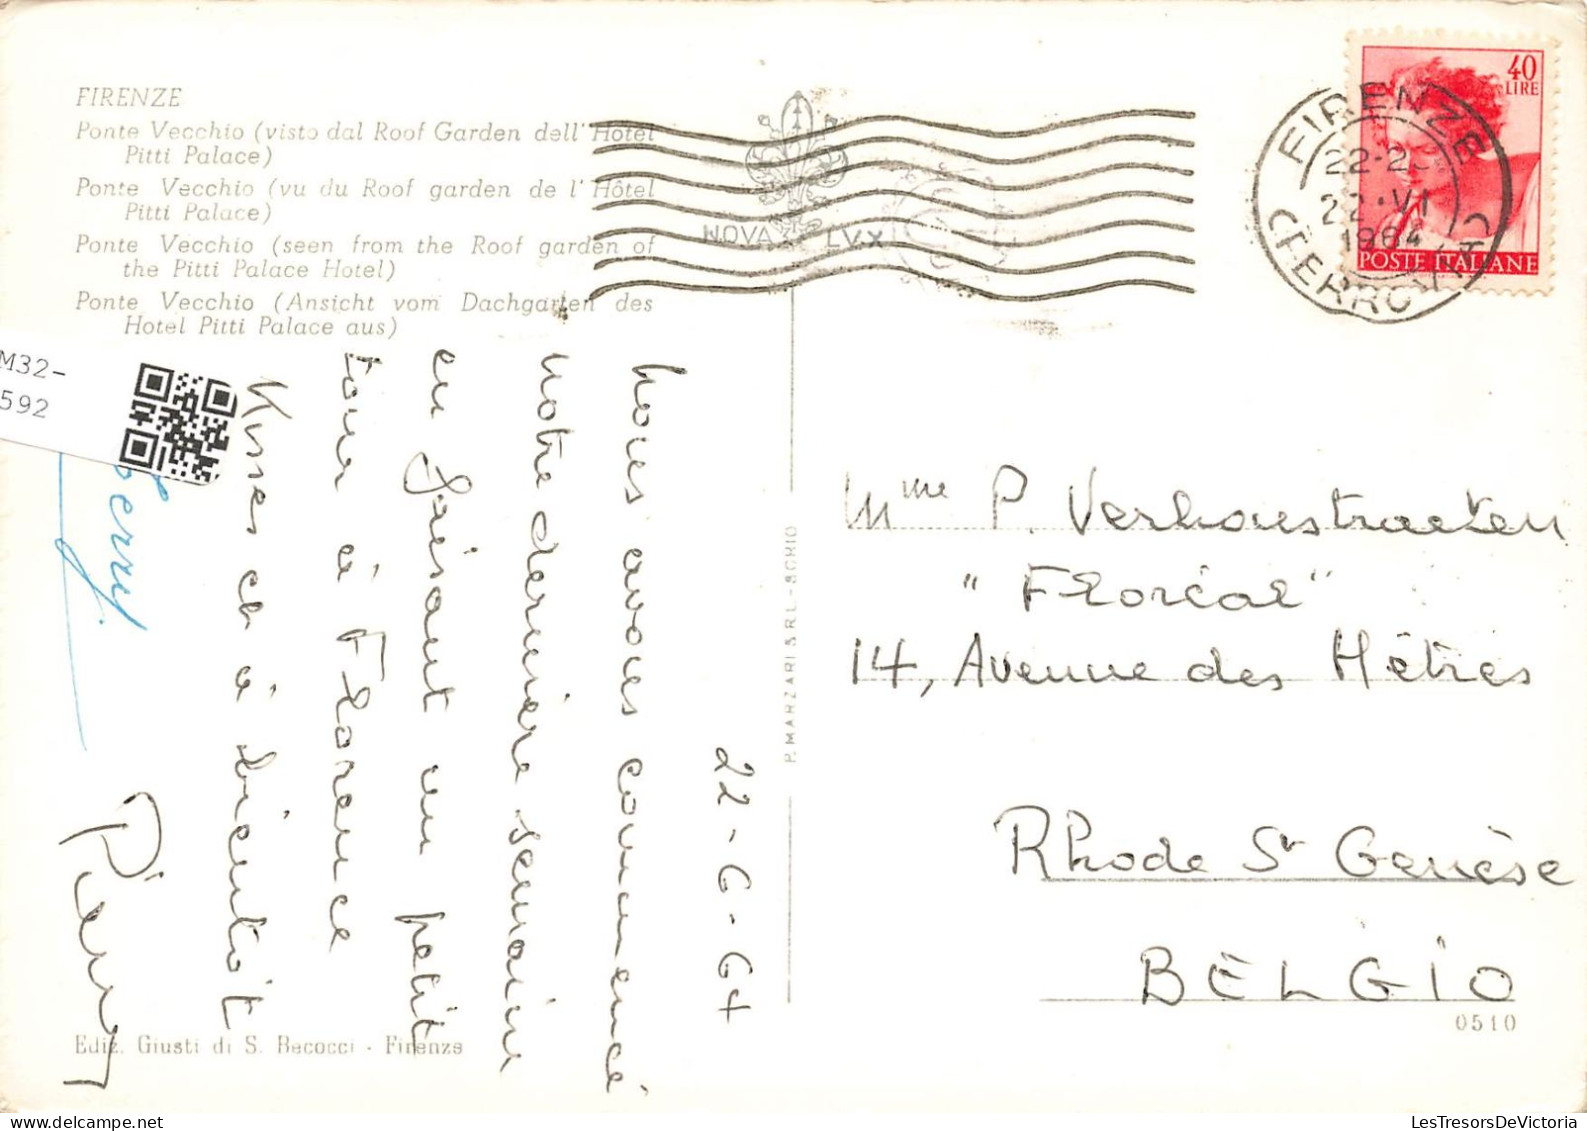 FIRENZE
Ponte Vecchio (visto dal Roof Garden dell' Hotel
Pitti Palace)
Ponte Vecchio (vu du Roof garden de l' Hôtel
Pitti Palace)
Ponte Vecchio (seen from the Roof garden of
the Pitti Palace Hotel)
Ponte Vecchio (Ansicht vom Dachgarten des
Hotel Pitti Palace aus)
M32-
592
NOVA LVX
FIRENZE
22-2
22·VI
1964
FERROVIA
40
LIRE
POSTE ITALIANE
22-6-64
Nous avons commencé
notre dernière semaine
en faisant un petit
tour à Florence
Kisses et à bientôt
Pierry
P. MARZARI S.R.L. - SCHIO
Mme P. Verhoustraeten
"Floréal"
14, Avenue des Hêtres
Rhode St Genèse
BELGIO
0510
Ediz. Giusti di S. Becocci - Firenze
LesTresorsDeVictoria.com